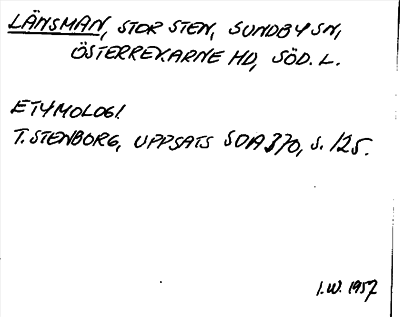 LÄNSMAN, STOR STEN, SUNDBY SN,
ÖSTERREKARNE HD, SÖD. L.
ETYMOLOGI
T. STENBORG, UPPSATS SOA 370, S. 125.
I.W. 1957